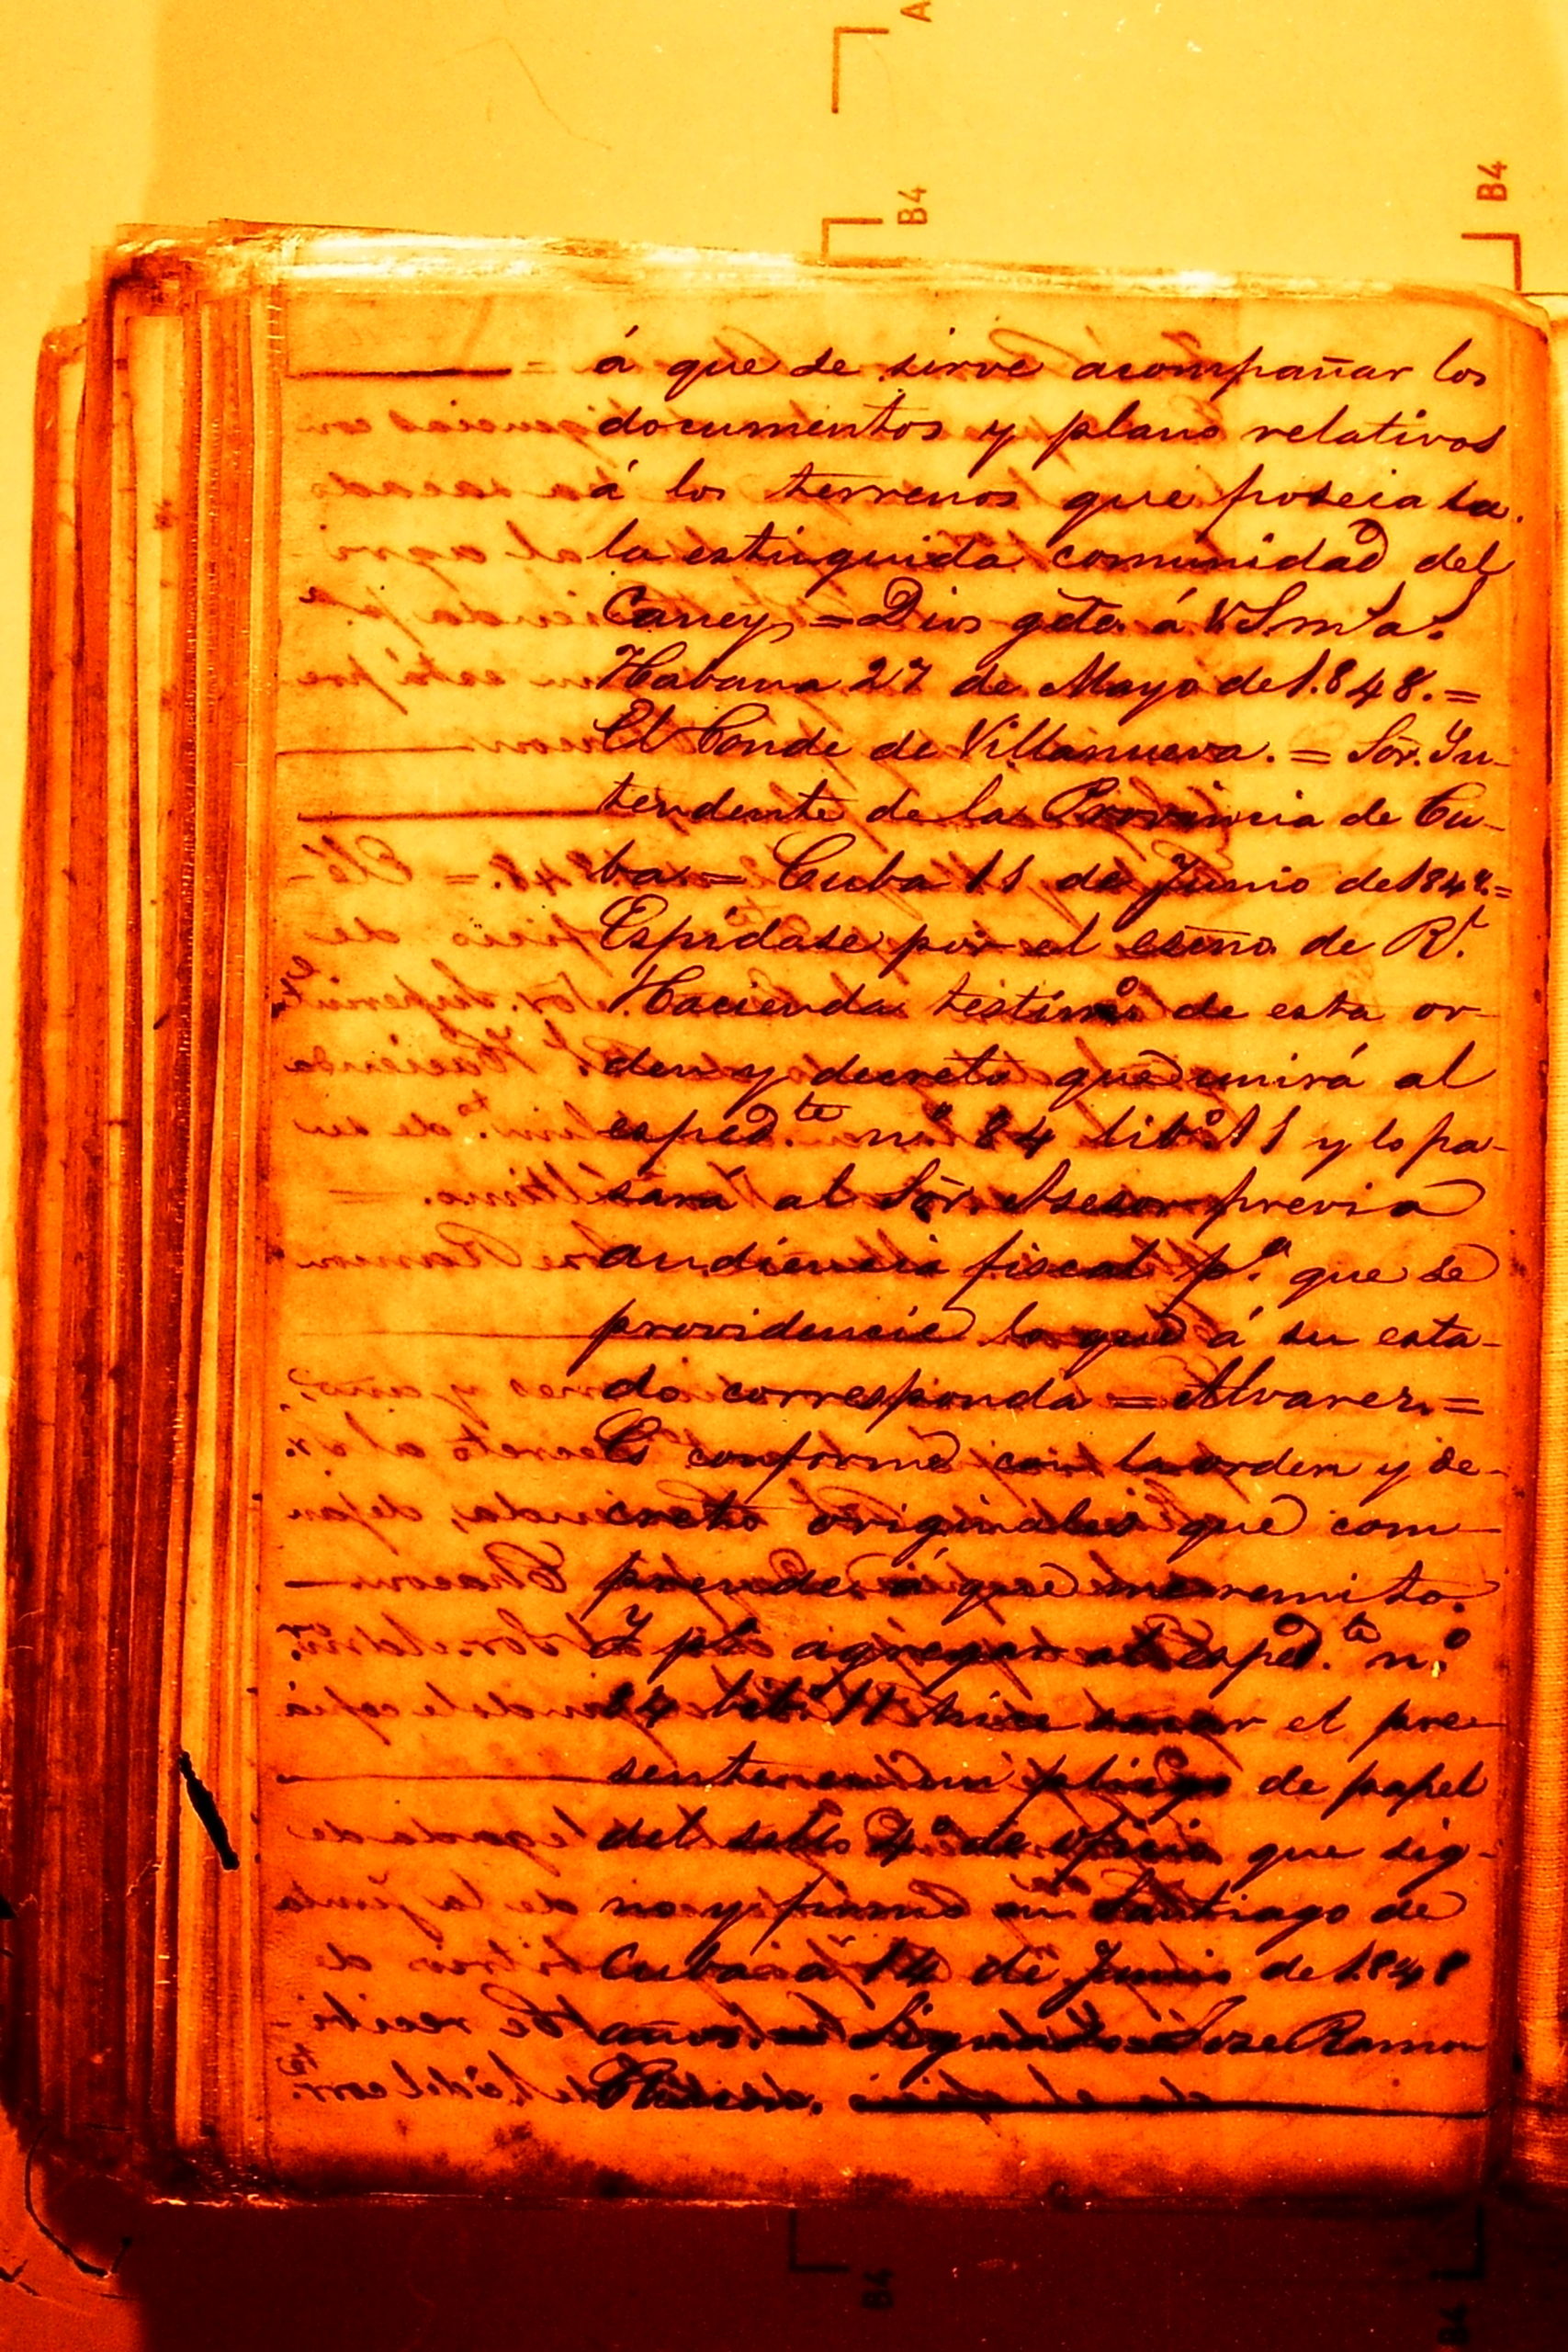 A
B4
B4
á que se sirve acompañar los
documentos y plano relativos
á los terrenos que poseia la
la estinguida comunidad del
Caney, = Dios gde. á V.S. ms. as.
Habana 27 de Mayo de 1.848. =
El Conde de Villanueva. = Sōr. In-
tendente de la Provincia de Cu-
ba = Cuba 11 de Junio de 1848. =
Espídase por el esno. de Rl.
Hacienda testimo. de esta or-
den y decreto que unirá al
esped.te no. 84 libo. 11 y lo pa-
sará al Sōr. Asesor previa
audiencia fiscal pa. que se
providencie lo que á su esta-
do corresponda = Alvarez, =
Es conforme con la orden y de-
creto originales que com-
prende á que me remito.
Y pa. agregar al esped.te n.o
84 libo. 11 hice sacar el pre-
sente en un pliego de papel
del sello 4o. de oficio que sig-
no y firmo en Santiago de
Cuba á 14 de Junio de 1.848
años. = Signado = Jose Ramon
B4
B4